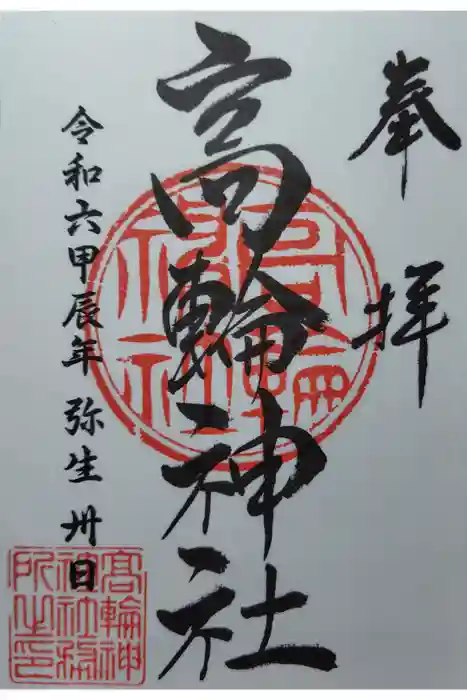 奉拝
高輪神社
令和六甲辰年 弥生 卅日
高輪
神社
高輪神
社務
所之印